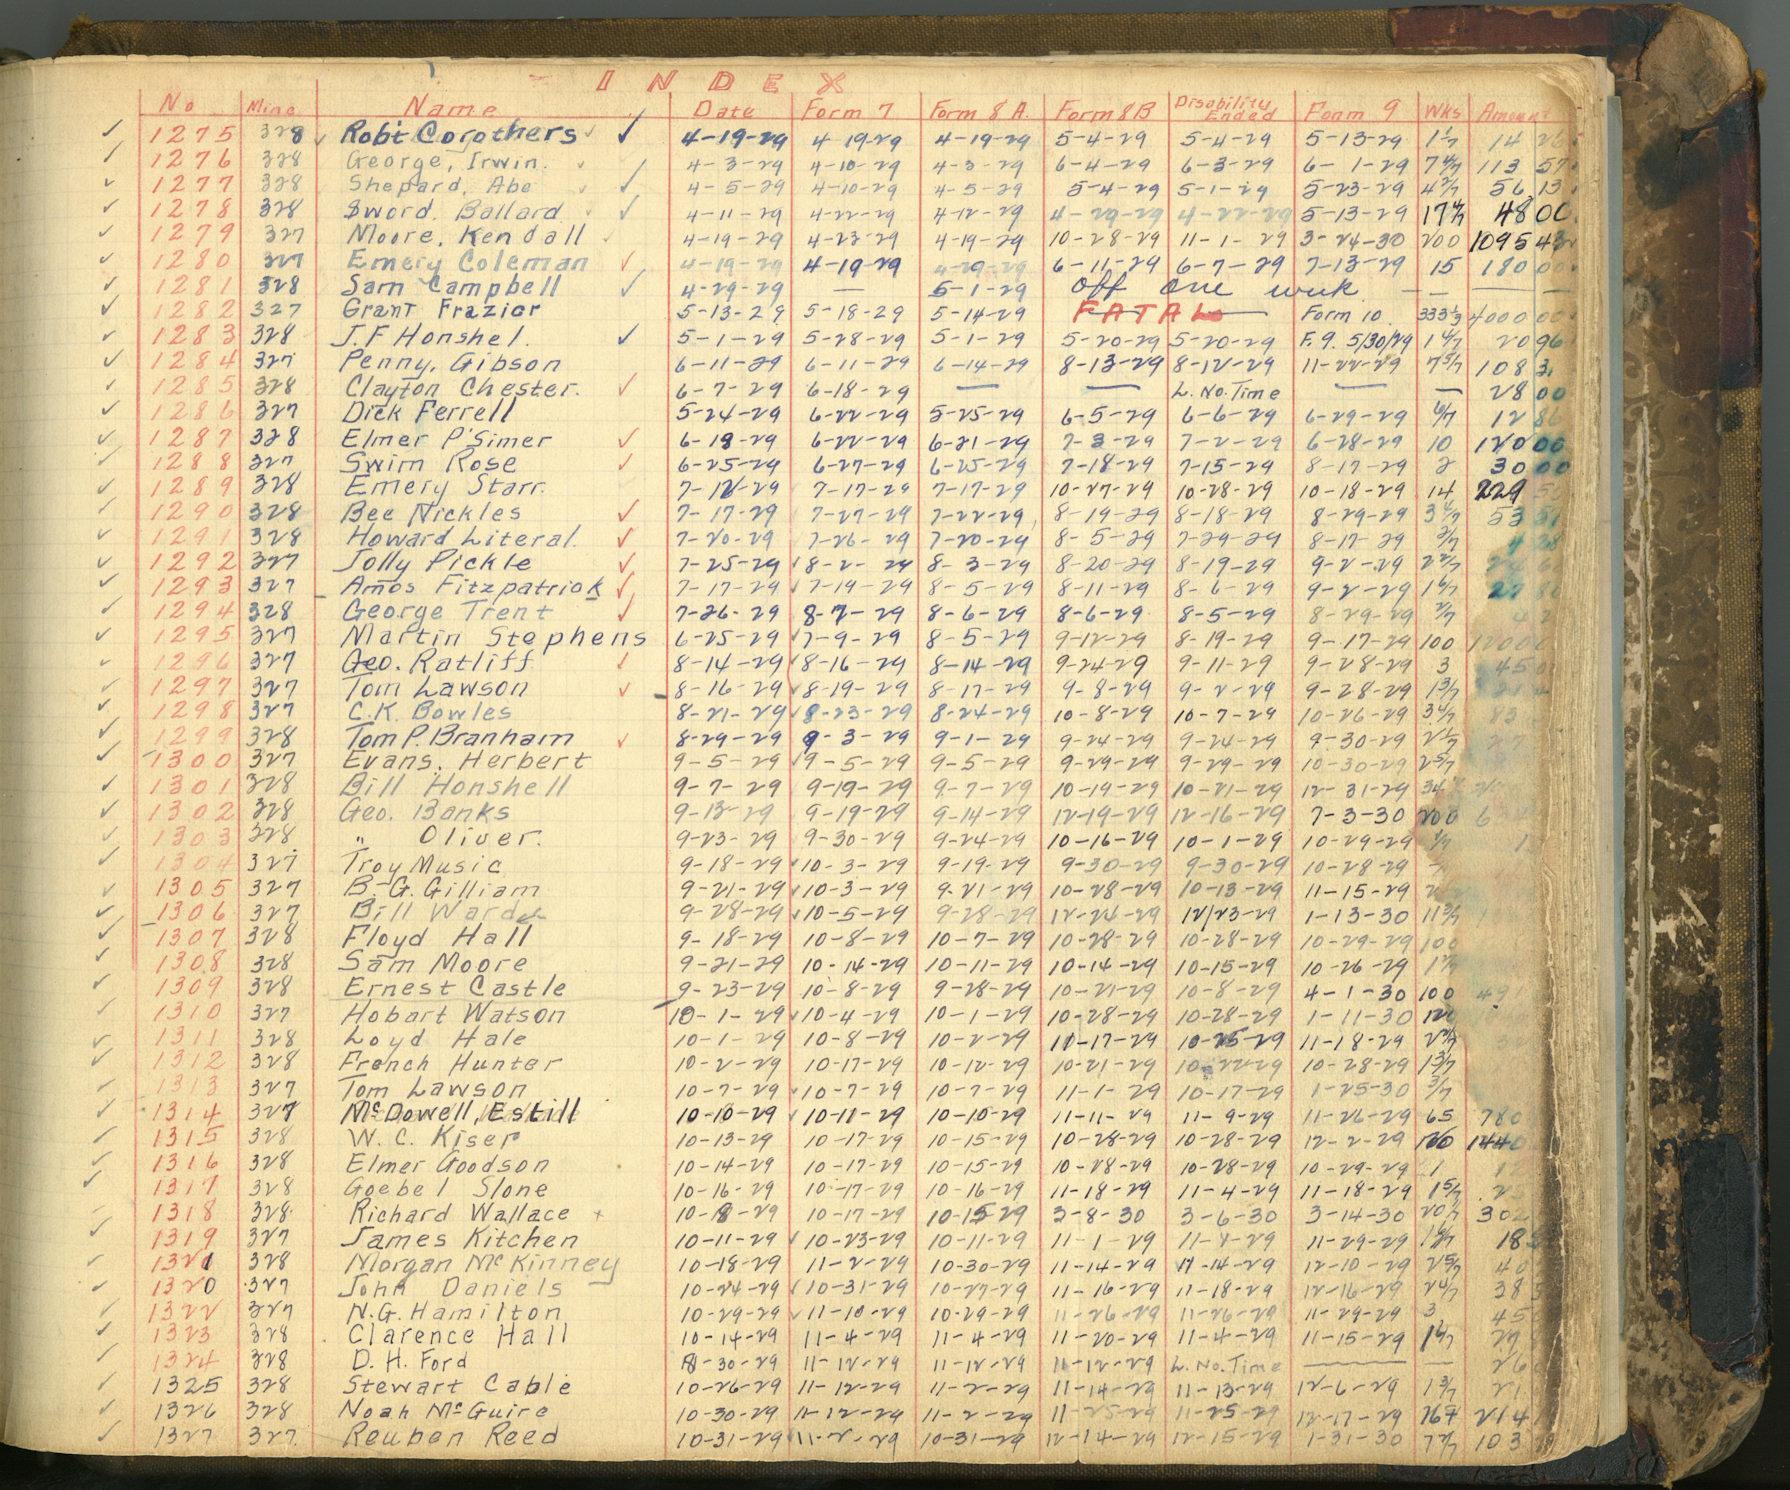 INDEX
No Mine Name Date Form 7 Form 8 A. Form 8B Disability Ended Form 9 Wks Amount
1275 328 Rob't Corothers 4-19-29 4 19-29 4-19-29 5-4-29 5-4-29 5-13-29 1 1/7 14
1276 328 George, Irwin. 4-3-29 4-10-29 4-3-29 6-4-29 6-3-29 6-1-29 7 4/7 113 57
1277 328 Shepard, Abe 4-5-29 4-10-29 4-5-29 5-4-29 5-1-29 5-23-29 4 2/7 56 13
1278 328 Sword, Ballard 4-11-29 4-22-29 4-12-29 4-29-29 4-22-29 5-13-29 17 4/7 48 00
1279 327 Moore, Kendall 4-19-29 4-23-29 4-19-29 10-28-29 11-1-29 3-24-30 200 1095
1280 327 Emery Coleman 4-19-29 4-19-29 4-29-29 6-11-29 6-7-29 7-13-29 15 180 00
1281 328 Sam Campbell 4-29-29 — 5-1-29 Off one week — —
1282 327 Grant Frazier 5-13-29 5-18-29 5-14-29 FATAL Form 10 333 1/3 4000 00
1283 328 J.F Honshel. 5-1-29 5-28-29 5-1-29 5-20-29 5-20-29 F.9. 5/30/29 1 4/7 20 96
1284 327 Penny, Gibson 6-11-29 6-11-29 6-14-29 8-13-29 8-12-29 11-22-29 7 5/7 108
1285 328 Clayton Chester. 6-7-29 6-18-29 — — L. No. Time — — 28 00
1286 327 Dick Ferrell 5-24-29 6-22-29 5-25-29 6-5-29 6-6-29 6-29-29 6/7 12 86
1287 328 Elmer P'Simer 6-19-29 6-22-29 6-21-29 7-3-29 7-2-29 6-28-29 10 120 00
1288 327 Swim Rose 6-25-29 6-27-29 6-25-29 7-18-29 7-15-29 8-17-29 2 30 00
1289 328 Emery Starr. 7-12-29 7-17-29 7-17-29 10-27-29 10-28-29 10-18-29 14 229 50
1290 328 Bee Nickles 7-17-29 7-27-29 7-22-29 8-19-29 8-18-29 8-29-29 3 4/7 53 57
1291 328 Howard Literal. 7-20-29 7-26-29 7-20-29 8-5-29 7-29-29 8-17-29 2/7 4 28
1292 327 Jolly Pickle 7-25-29 8-2-29 8-3-29 8-20-29 8-19-29 9-2-29 2 2/7
1293 327 Amos Fitzpatrick 7-17-29 7-19-29 8-5-29 8-11-29 8-6-29 9-2-29 1 6/7 27
1294 328 George Trent 7-26-29 8-7-29 8-6-29 8-6-29 8-5-29 8-29-29 2/7
1295 327 Martin Stephens 6-25-29 7-9-29 8-5-29 9-12-29 8-19-29 9-17-29 100 1200
1296 327 Geo. Ratliff 8-14-29 8-16-29 8-14-29 9-24-29 9-11-29 9-28-29 3 45
1297 327 Tom Lawson 8-16-29 8-19-29 8-17-29 9-8-29 9-2-29 9-28-29 1 3/7
1298 327 C.K. Bowles 8-21-29 8-23-29 8-24-29 10-8-29 10-7-29 10-26-29 3 4/7 83
1299 328 Tom P. Branham 8-29-29 9-3-29 9-1-29 9-24-29 9-24-29 9-30-29
1300 327 Evans, Herbert 9-5-29 9-5-29 9-5-29 9-29-29 9-29-29 10-30-29 2 5/7
1301 328 Bill Honshell 9-7-29 9-19-29 9-7-29 10-19-29 10-21-29 12-31-29
1302 328 Geo. Banks 9-13-29 9-19-29 9-14-29 12-19-29 12-16-29 7-3-30 200
1303 328 " Oliver. 9-23-29 9-30-29 9-24-29 10-16-29 10-1-29 10-29-29
1304 327 Troy Music 9-18-29 10-3-29 9-19-29 9-30-29 9-30-29 10-28-29
1305 327 B.G. Gilliam 9-21-29 10-3-29 9-21-29 10-28-29 10-13-29 11-15-29
1306 327 Bill Ward 9-28-29 10-5-29 9-28-29 12-24-29 12/23-29 1-13-30
1307 328 Floyd Hall 9-18-29 10-8-29 10-7-29 10-28-29 10-28-29 10-29-29 100
1308 328 Sam Moore 9-21-29 10-14-29 10-11-29 10-14-29 10-15-29 10-26-29
1309 328 Ernest Castle 9-23-29 10-8-29 9-28-29 10-21-29 10-8-29 4-1-30 100
1310 327 Hobart Watson 10-1-29 10-4-29 10-1-29 10-28-29 10-28-29 1-11-30 120
1311 328 Loyd Hale 10-1-29 10-8-29 10-2-29 10-17-29 10-25-29 11-18-29
1312 328 French Hunter 10-2-29 10-17-29 10-12-29 10-21-29 10-22-29 10-28-29 1 3/7
1313 327 Tom Lawson 10-7-29 10-7-29 10-7-29 11-1-29 10-17-29 1-25-30 3/7
1314 327 McDowell, Estill 10-10-29 10-11-29 10-10-29 11-11-29 11-9-29 11-26-29 65 780
1315 328 W. C. Kiser 10-13-29 10-17-29 10-15-29 10-28-29 10-28-29 12-2-29 120 1440
1316 328 Elmer Goodson 10-14-29 10-17-29 10-15-29 10-28-29 10-28-29 10-29-29 1 12
1317 328 Goebel Slone 10-16-29 10-17-29 10-16-29 11-18-29 11-4-29 11-18-29 1 5/7
1318 328 Richard Wallace 10-18-29 10-17-29 10-15-29 3-8-30 3-6-30 3-14-30 302
1319 327 James Kitchen 10-11-29 10-23-29 10-11-29 11-1-29 11-4-29 11-29-29 18
1321 328 Morgan McKinney 10-18-29 11-2-29 10-30-29 11-14-29 11-14-29 12-10-29 2 5/7 40
1320 327 John Daniels 10-24-29 10-31-29 10-27-29 11-16-29 11-18-29 12-16-29 2 4/7 38
1322 327 N.G. Hamilton 10-29-29 11-10-29 10-29-29 11-26-29 11-26-29 11-29-29 3 45
1323 328 Clarence Hall 10-14-29 11-4-29 11-4-29 11-20-29 11-4-29 11-15-29 1 6/7 27
1324 328 D. H. Ford 8-30-29 11-12-29 11-12-29 11-12-29 L. No. Time — — 26
1325 328 Stewart Cable 10-26-29 11-12-29 11-2-29 11-14-29 11-13-29 12-6-29 1 3/7 21
1326 328 Noah McGuire 10-30-29 11-12-29 11-2-29 11-25-29 11-25-29 12-17-29 214
1327 327 Reuben Reed 10-31-29 11-2-29 10-31-29 12-14-29 12-15-29 1-31-30 7 2/7 103